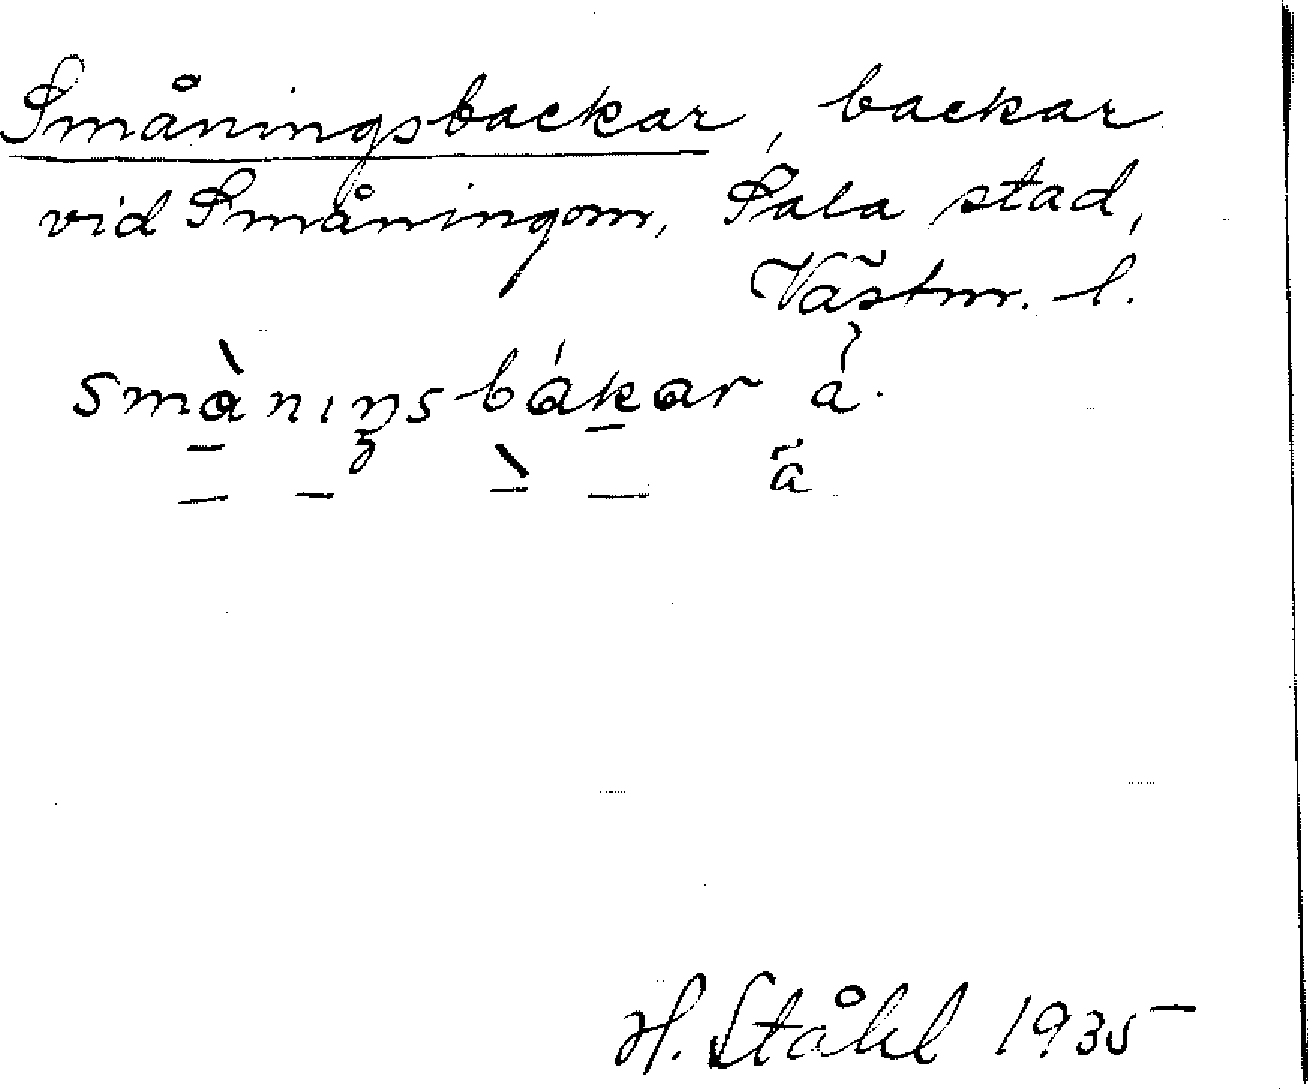 Småningsbackar, backar
vid Småningom, Sala stad,
Västm. l.
smàniŋsbákar
H. Ståhl 1935